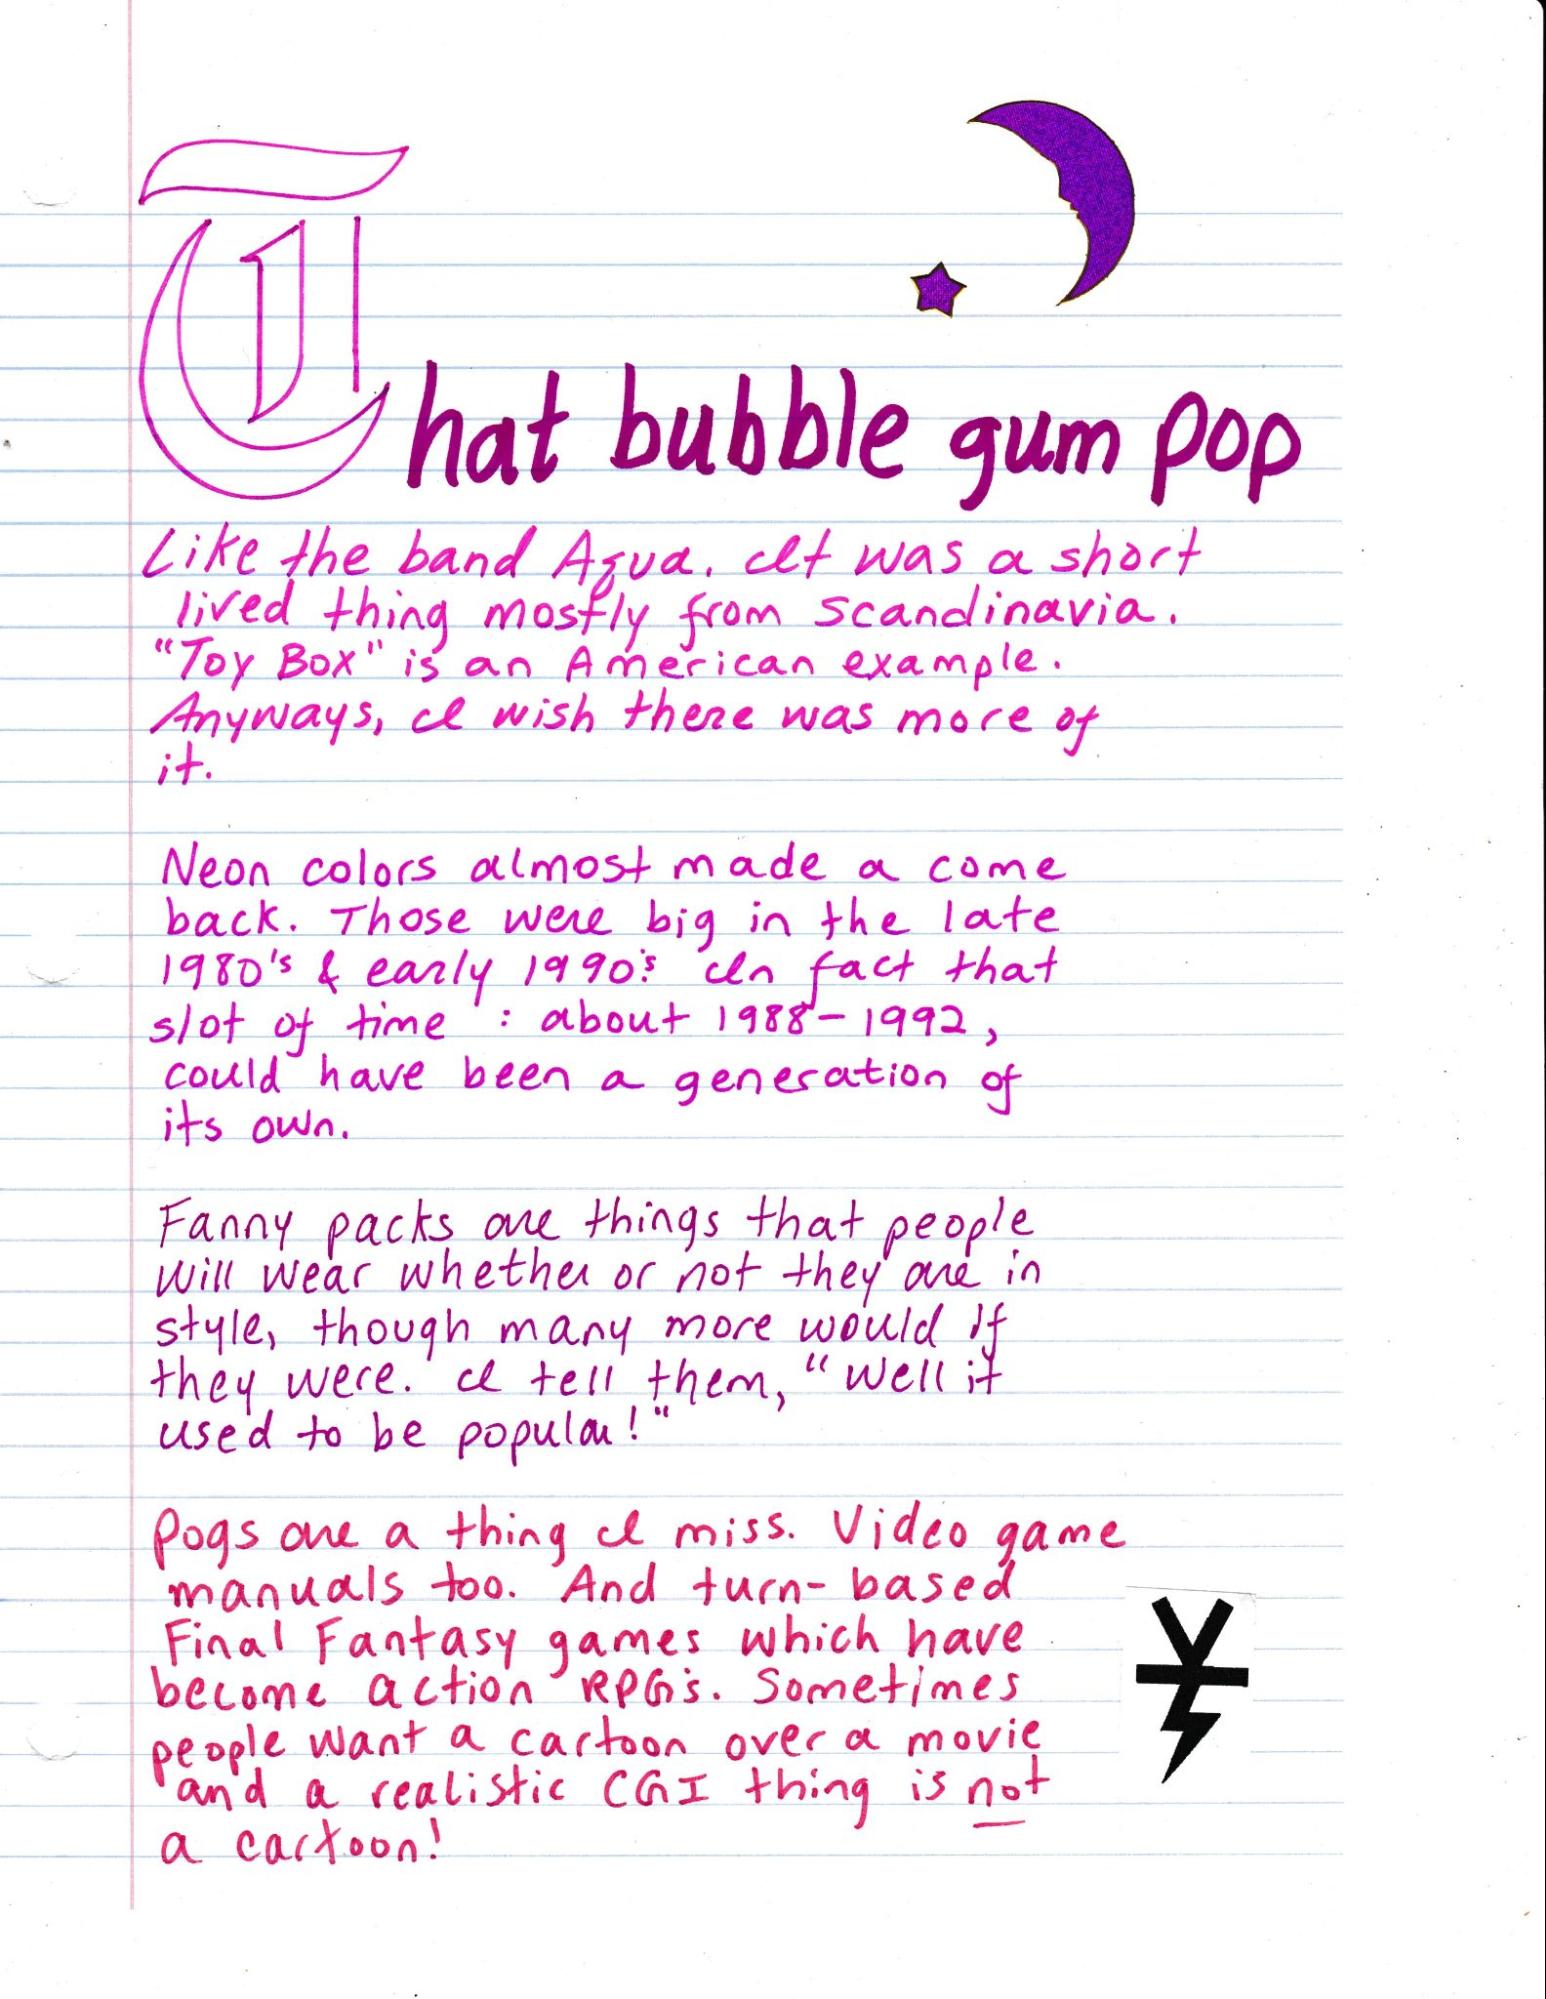 That bubble gum pop
Like the band Aqua. It was a short
lived thing mostly from Scandinavia.
"Toy Box" is an American example.
Anyways, I wish there was more of
it.
Neon colors almost made a come
back. Those were big in the late
1980's & early 1990's. In fact that
slot of time : about 1988-1992,
could have been a generation of
its own.
Fanny packs are things that people
will wear whether or not they are in
style, though many more would if
they were. I tell them, "Well it
used to be popular!"
Pogs are a thing I miss. Video game
manuals too. And turn-based
Final Fantasy games which have
become action RPG's. Sometimes
people want a cartoon over a movie
and a realistic CGI thing is not
a cartoon!